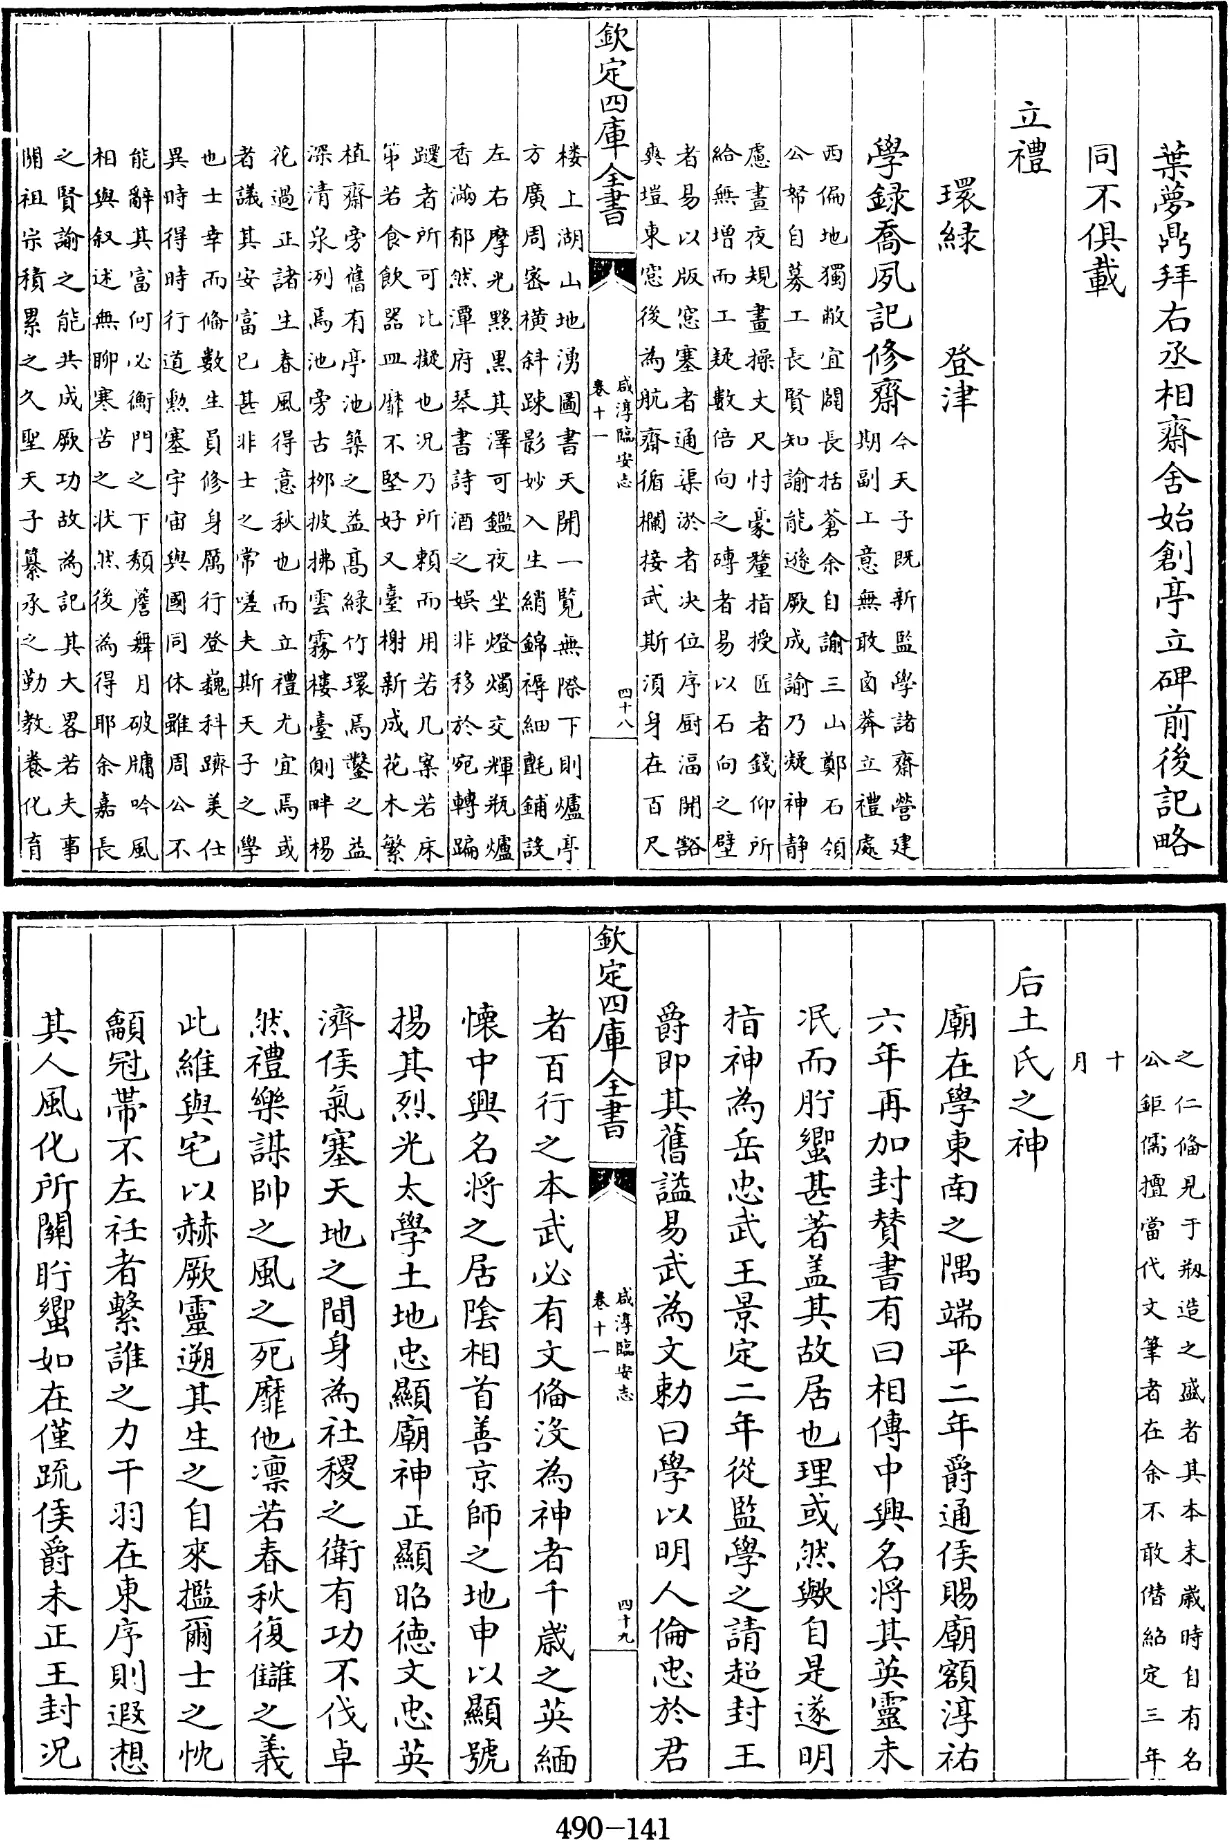 葉夢鼎拜右丞相齋舍始創亭立碑前後記略
同不俱載
立禮
環緑 登津
學録喬夙記修齋
今天子既新監學諸齋營建
期副上意無敢鹵莽立禮處
西偏地獨敝宜闊長括蒼余自諭三山鄭石領
公帑自募工長賢知諭能遜厥成諭乃凝神静
慮晝夜規畫操丈尺忖豪釐指授匠者錢仰所
給無增而工疑數倍向之磚者易以石向之壁
者易以版窓塞者通渠淤者决位序厨湢開豁
爽塏東窓後為航齋循欄接武斯湏身在百尺
欽定四庫全書
咸淳臨安志
卷十一
四十八
樓上湖山地湧圖書天開一覽無際下則爐亭
方廣周宻横斜踈影妙入生綃錦褥細氊鋪設
左右摩光黝黒其澤可鑑夜坐燈燭交輝瓶爐
香滿郁然潭府琴書詩酒之娯非移於宛轉蹁
躚者所可比擬也况乃所頼而用若几案若床
笫若食飲器皿靡不堅好又臺榭新成花木繁
植齋旁舊有亭池築之益髙緑竹環焉鑿之益
深清泉冽焉池旁古栁披拂雲霧樓臺側畔楊
花過正諸生春風得意秋也而立禮尤宜焉或
者議其安富已甚非士之常嗟夫斯天子之學
也士幸而偹數生員修身厲行登巍科躋美仕
異時得時行道勲塞宇宙與國同休雖周公不
能辭其富何必衡門之下頽簷舞月破牗吟風
相與叙述無聊寒苦之状然後為得耶余嘉長
之賢諭之能共成厥功故為記其大畧若夫事
關祖宗積累之久聖天子纂承之勤教養化育
之仁偹見于剏造之盛者其本末嵗時自有名
公鉅儒擅當代文筆者在余不敢僣紹定三年
十
月
后土氏之神
廟在學東南之隅端平二年爵通侯賜廟額淳祐
六年再加封賛書有曰相傳中興名將其英靈未
泯而肸蠁甚著盖其故居也理或然歟自是遂明
指神為岳忠武王景定二年從監學之請超封王
爵即其舊謚易武為文勅曰學以明人倫忠於君
欽定四庫全書
咸淳臨安志
卷十一
四十九
者百行之本武必有文偹沒為神者千嵗之英緬
懐中興名將之居陰相首善京師之地申以顯號
揚其烈光太學土地忠顯廟神正顯昭徳文忠英
濟侯氣塞天地之間身為社稷之衛有功不伐卓
然禮樂謀帥之風之死靡他凛若春秋復讎之義
此維與宅以赫厥靈遡其生之自來㩜爾士之忱
龥冠帶不左衽者繫誰之力干羽在東序則遐想
其人風化所闗肸蠁如在僅疏侯爵未正王封况
490-141